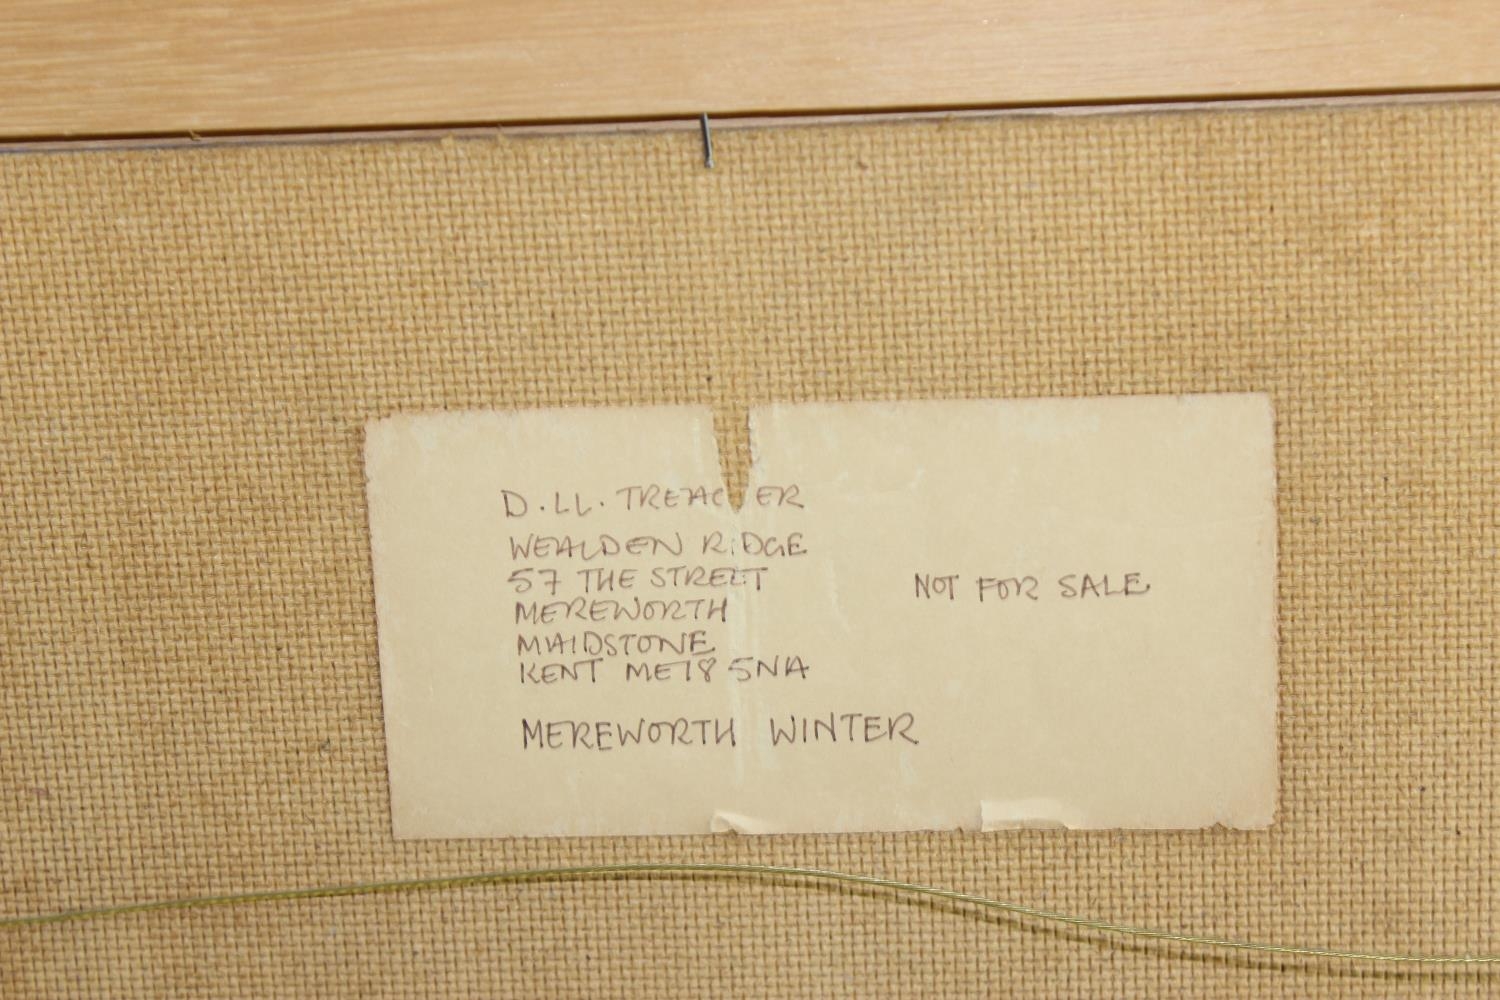 D.LL. TREACHER
WEALDEN RIDGE
57 THE STREET
MEREWORTH
MAIDSTONE
KENT ME18 5NA
NOT FOR SALE
MEREWORTH WINTER